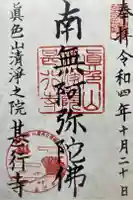 奉拝 令和四年十月二十日
南無阿弥陀佛
眞色山清浄之院 甚行寺